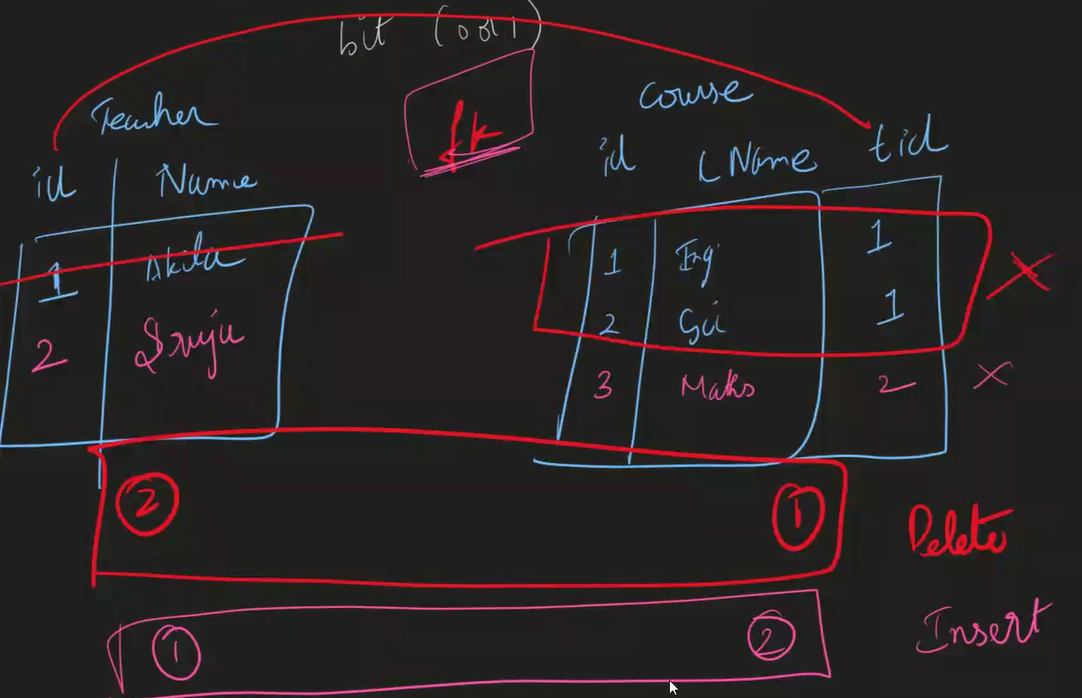 bit (001)
Teacher
id Name
1 Akila
2 Sruju
fk
Course
id CName tid
1 Eng 1
2 Sci 1
3 Maths 2
2 1 Delete
1 2 Insert